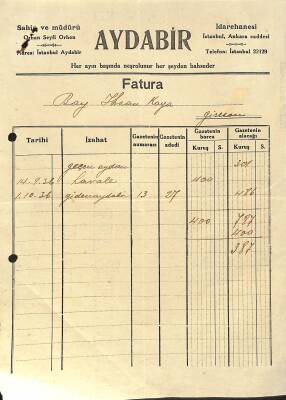 Sahip ve müdürü
Orhan Seyfi Orhon
Adres: İstanbul Aydabir
AYDABİR
İdarehanesi
İstanbul, Ankara caddesi
Telefon: İstanbul 22129
Her ayın başında neşrolunur her şeyden bahseder
Fatura
Bay İhsan Kaya
Giresun
Tarihi İzahat Gazetenin numarası Gazetenin adedi Gazetenin borcu Kuruş S. Gazetenin alacağı Kuruş S.
geçen aydan 301
14.9.36 havale 400
1.10.36 giden aydabir 13 27 486
400 787
400
387